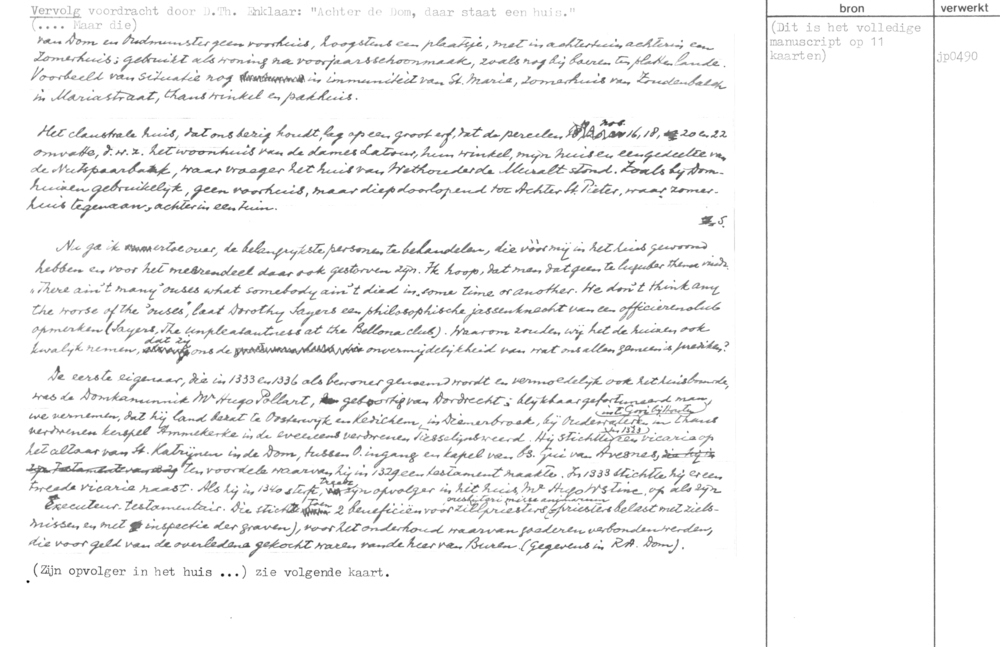 Vervolg voordracht door D.Th. Enklaar: "Achter de Dom, daar staat een huis."
(.... Maar die)
bron
verwerkt
(Dit is het volledige
manuscript op 11
kaarten)
jp0490
van Dom en Oudmunster geen voorhuis, hoogstens een plaatsje, met in achtertuin achterin een
zomerhuis; gebruikt als woning na voorjaarsschoonmaak, zoals nog bij boeren ten platten lande.
Voorbeeld van situatie nog in immuniteit van St. Marie, zomerhuis van Zoudenbalch
in Mariastraat, thans winkel en pakhuis.
Het claustrale huis, dat ons bezig houdt, lag op een groot erf, dat de percelen nos. 16, 18, 20 en 22
omvatte, d.w.z. het woonhuis van de dames Latour, hun winkel, mijn huis en een gedeelte van
de Nutsspaarbank, waar vroeger het huis van Wethouder de Muralt stond. Zoals bij Dom-
huizen gebruikelijk, geen voorhuis, maar diep doorlopend tot Achter St. Pieter, waar zomer-
huis tegenaan, achter in een tuin.
5.
Nu ga ik ertoe over, de belangrijkste personen te behandelen, die vóór mij in het huis gewoond
hebben en voor het merendeel daar ook gestorven zijn. Ik hoop, dat men dat geen te luguber thema vindt.
"There ain't many 'ouses what somebody ain't died in some time or another. We don't think any
the worse of the 'ouses", laat Dorothy Sayers een philosophische jassenknecht van een officierenclub
opmerken (Sayers, The unpleasantness at the Bellona club). Waarom zouden wij het de huizen ook
kwalijk nemen, dat zij ons de onvermijdelijkheid van wat ons allen gemeen is prediken?
De eerste eigenaar, die in 1333 en 1336 als bewoner genoemd wordt en vermoedelijk ook het huis bouwde,
was de Domkanunnik Mr Hugo Pollart, geboortig van Dordrecht; blijkbaar gefortuneerd man,
we vernemen, dat hij land bezat te Oosterwijk en Kedichem, in Dienenbroek, bij Oudewater, in thans
verdwenen kerspel Emmekerke in de eveneens verdwenen Tiesselijnswaerd. Hij stichtte in 1323 een vicarie op
het altaar van St. Katrijnen in de Dom, tussen O. ingang en kapel van bs. Gui van Avesnes,
ten voordele waarvan hij in 1329 een testament maakte. In 1333 stichtte hij er een
tweede vicarie naast. Als hij in 1340 sterft, zijn opvolger in het huis, Mr Hugo Wstinc, op als zijn
Executeur-testamentair. Die stichtte toen 2 beneficiën voor zielpriesters (priesters belast met ziels-
missen en met inspectie der graven), voor het onderhoud waarvan goederen verbonden werden,
die voor geld van de overledene gekocht waren van de heer van Buren. (Gegevens in R.A. Dom).
(Zijn opvolger in het huis ...) zie volgende kaart.